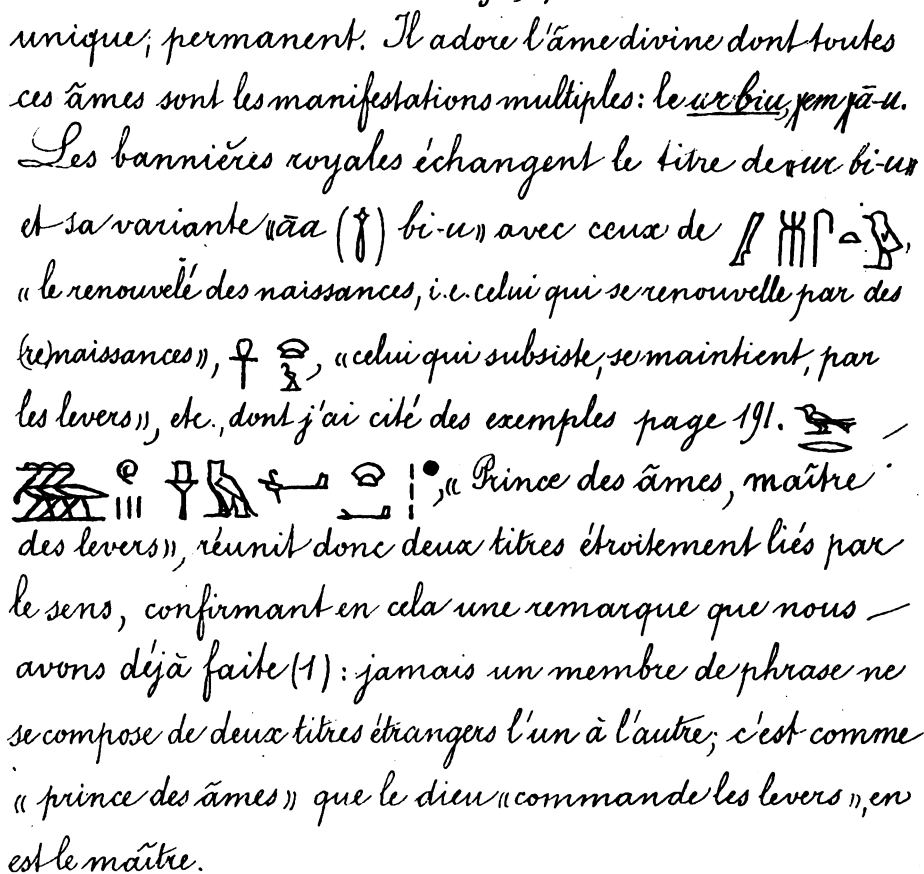 unique, permanent. Il adore l'âme divine dont toutes
ces âmes sont les manifestations multiples: le ur biu, χem χā-u.
Les bannières royales échangent le titre de «ur bi-u»
et sa variante «āa (𓉻) bi-u» avec ceux de
«le renouvelé des naissances, i.e. celui qui se renouvelle par des
(re)naissances», 𓋹 𓈍, «celui qui subsiste, se maintient, par
les levers», etc., dont j'ai cité des exemples page 191. 𓅨 𓂋
«Prince des âmes, maître
des levers», réunit donc deux titres étroitement liés par
le sens, confirmant en cela une remarque que nous
avons déjà faite (1): jamais un membre de phrase ne
se compose de deux titres étrangers l'un à l'autre; c'est comme
«prince des âmes» que le dieu «commande les levers», en
est le maître.